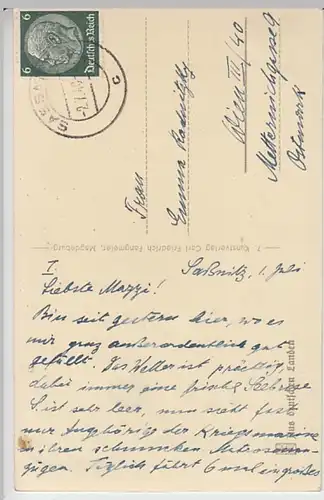 6 Deutsches Reich 6
SASSN
-2.7.40
c
Frau
Emma Radnitzky
Wien III/40
Metternichgasse 9
Ostmark
Kunstverlag Carl Friedrich Fangmeier, Magdeburg
Aus deutschen Landen
I.
Saßnitz, 1. Juli
Liebste Mazzi!
Bin seit gestern hier, wo es
mir ganz außerordentlich gut
gefällt. Das Wetter ist prächtig
dabei immer eine frische Seebrise
S. ist sehr leer, man sieht fast
nur Angehörige der Kriegsmarine
in ihren schmucken
zügen. Täglich fährt 6 mal ein großes